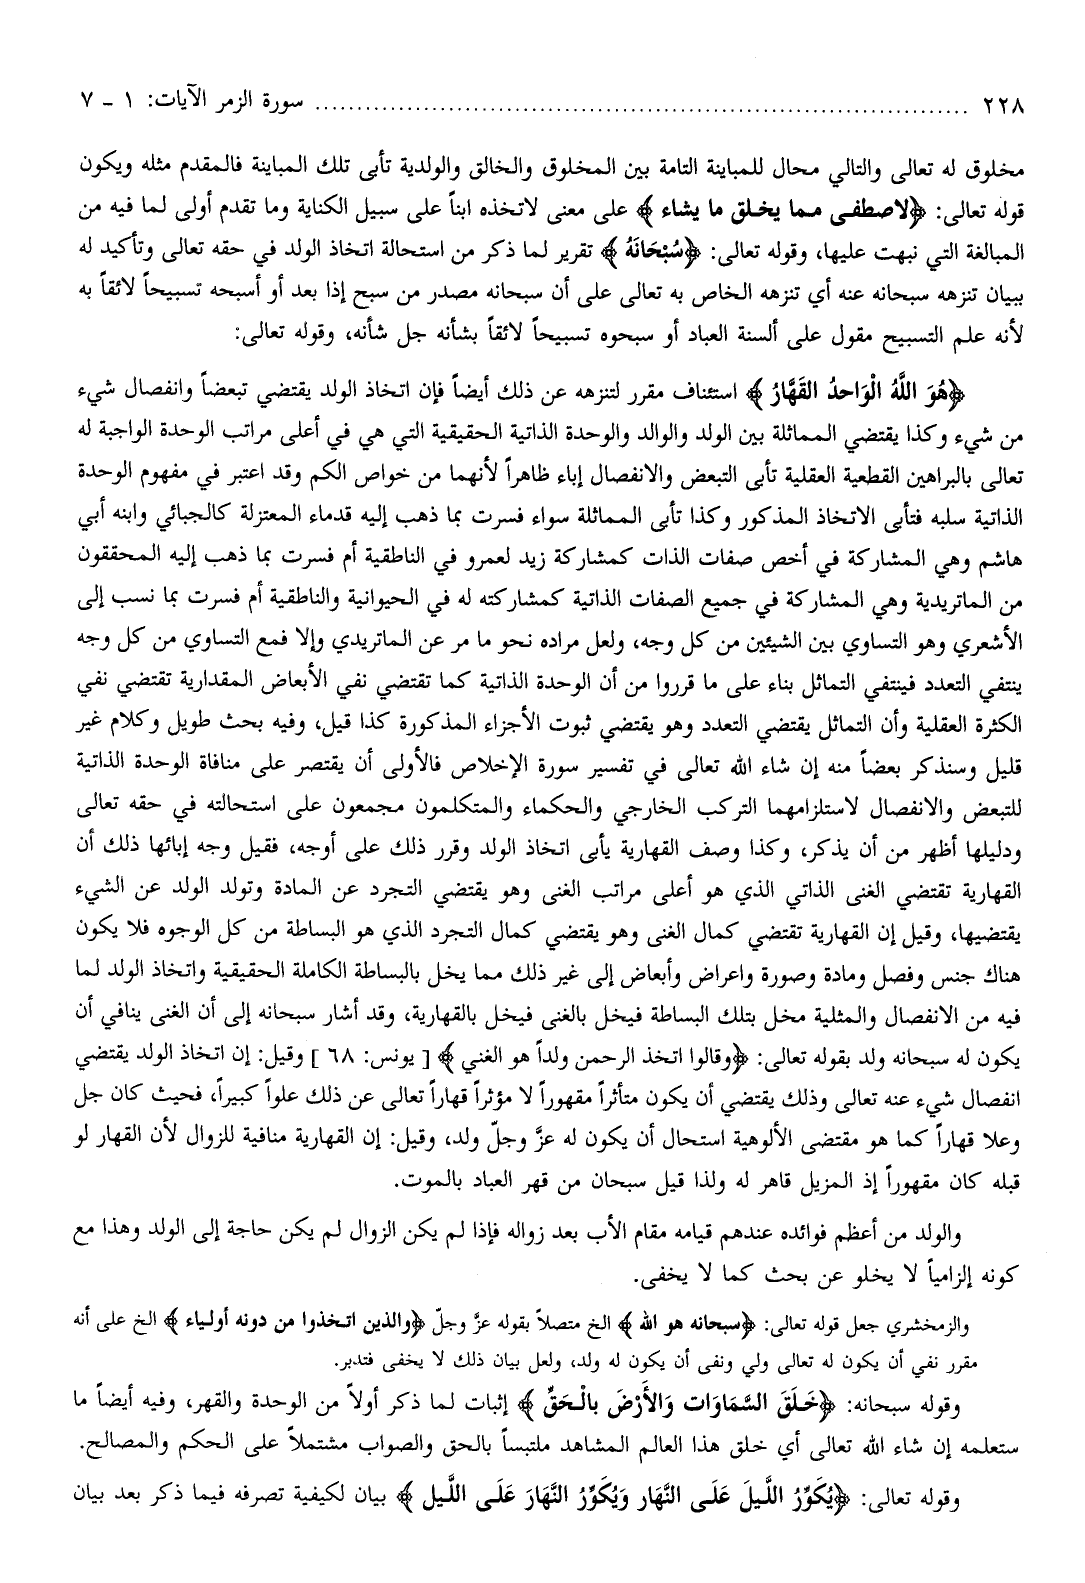 ٢٢٨ ........................................................................ سورة الزمر الآيات: ١ - ٧
مخلوق له تعالى والتالي محال للمباينة التامة بين المخلوق والخالق والولدية تأبى تلك المباينة فالمقدم مثله ويكون
قوله تعالى: ﴿لاصطفى مما يخلق ما يشاء﴾ على معنى لاتخذه ابناً على سبيل الكناية وما تقدم أولى لما فيه من
المبالغة التي نبهت عليها، وقوله تعالى: ﴿سُبْحَانَهُ﴾ تقرير لما ذكر من استحالة اتخاذ الولد في حقه تعالى وتأكيد له
ببيان تنزهه سبحانه عنه أي تنزهه الخاص به تعالى على أن سبحانه مصدر من سبح إذا بعد أو أسبحه تسبيحاً لائقاً به
لأنه علم التسبيح مقول على ألسنة العباد أو سبحوه تسبيحاً لائقاً بشأنه جل شأنه، وقوله تعالى:
﴿هُوَ اللَّهُ الْوَاحدُ القَهَّارُ﴾ استئناف مقرر لتنزهه عن ذلك أيضاً فإن اتخاذ الولد يقتضي تبعضاً وانفصال شيء
من شيء وكذا يقتضي المماثلة بين الولد والوالد والوحدة الذاتية الحقيقية التي هي في أعلى مراتب الوحدة الواجبة له
تعالى بالبراهين القطعية العقلية تأبى التبعض والانفصال إباء ظاهراً لأنهما من خواص الكم وقد اعتبر في مفهوم الوحدة
الذاتية سلبه فتأبى الاتخاذ المذكور وكذا تأبى المماثلة سواء فسرت بما ذهب إليه قدماء المعتزلة كالجبائي وابنه أبي
هاشم وهي المشاركة في أخص صفات الذات كمشاركة زيد لعمرو في الناطقية أم فسرت بما ذهب إليه المحققون
من الماتريدية وهي المشاركة في جميع الصفات الذاتية كمشاركته له في الحيوانية والناطقية أم فسرت بما نسب إلى
الأشعري وهو التساوي بين الشيئين من كل وجه، ولعل مراده نحو ما مر عن الماتريدي وإلا فمع التساوي من كل وجه
ينتفي التعدد فينتفي التماثل بناء على ما قرروا من أن الوحدة الذاتية كما تقتضي نفي الأبعاض المقدارية تقتضي نفي
الكثرة العقلية وأن التماثل يقتضي التعدد وهو يقتضي ثبوت الأجزاء المذكورة كذا قيل، وفيه بحث طويل وكلام غير
قليل وسنذكر بعضاً منه إن شاء الله تعالى في تفسير سورة الإخلاص فالأولى أن يقتصر على منافاة الوحدة الذاتية
للتبعض والانفصال لاستلزامهما التركب الخارجي والحكماء والمتكلمون مجمعون على استحالته في حقه تعالى
ودليلها أظهر من أن يذكر، وكذا وصف القهارية يأبى اتخاذ الولد وقرر ذلك على أوجه، فقيل وجه إبائها ذلك أن
القهارية تقتضي الغنى الذاتي الذي هو أعلى مراتب الغنى وهو يقتضي التجرد عن المادة وتولد الولد عن الشيء
يقتضيها، وقيل إن القهارية تقتضي كمال الغنى وهو يقتضي كمال التجرد الذي هو البساطة من كل الوجوه فلا يكون
هناك جنس وفصل ومادة وصورة واعراض وأبعاض إلى غير ذلك مما يخل بالبساطة الكاملة الحقيقية واتخاذ الولد لما
فيه من الانفصال والمثلية مخل بتلك البساطة فيخل بالغنى فيخل بالقهارية، وقد أشار سبحانه إلى أن الغنى ينافي أن
يكون له سبحانه ولد بقوله تعالى: ﴿وقالوا اتخذ الرحمن ولداً هو الغني﴾ [ يونس: ٦٨ ] وقيل: إن اتخاذ الولد يقتضي
انفصال شيء عنه تعالى وذلك يقتضي أن يكون متأثراً مقهوراً لا مؤثراً قهاراً تعالى عن ذلك علواً كبيراً، فحيث كان جل
وعلا قهاراً كما هو مقتضى الألوهية استحال أن يكون له عزَّ وجلّ ولد، وقيل: إن القهارية منافية للزوال لأن القهار لو
قبله كان مقهوراً إذ المزيل قاهر له ولذا قيل سبحان من قهر العباد بالموت.
والولد من أعظم فوائده عندهم قيامه مقام الأب بعد زواله فإذا لم يكن الزوال لم يكن حاجة إلى الولد وهذا مع
كونه إلزامياً لا يخلو عن بحث كما لا يخفى.
والزمخشري جعل قوله تعالى: ﴿سبحانه هو الله﴾ الخ متصلاً بقوله عزَّ وجلّ ﴿والذين اتخذوا من دونه أولياء﴾ الخ على أنه
مقرر نفي أن يكون له تعالى ولي ونفى أن يكون له ولد، ولعل بيان ذلك لا يخفى فتدبر.
وقوله سبحانه: ﴿خَلَقَ السَّمَاوَات وَالأَرْضَ بالْحَقِّ﴾ إثبات لما ذكر أولاً من الوحدة والقهر، وفيه أيضاً ما
ستعلمه إن شاء الله تعالى أي خلق هذا العالم المشاهد ملتبساً بالحق والصواب مشتملاً على الحكم والمصالح.
وقوله تعالى: ﴿يُكَوِّرُ اللَّيلَ عَلَى النَّهَار وَيُكَوِّرُ النَّهَارَ عَلَى اللَّيل﴾ بيان لكيفية تصرفه فيما ذكر بعد بيان